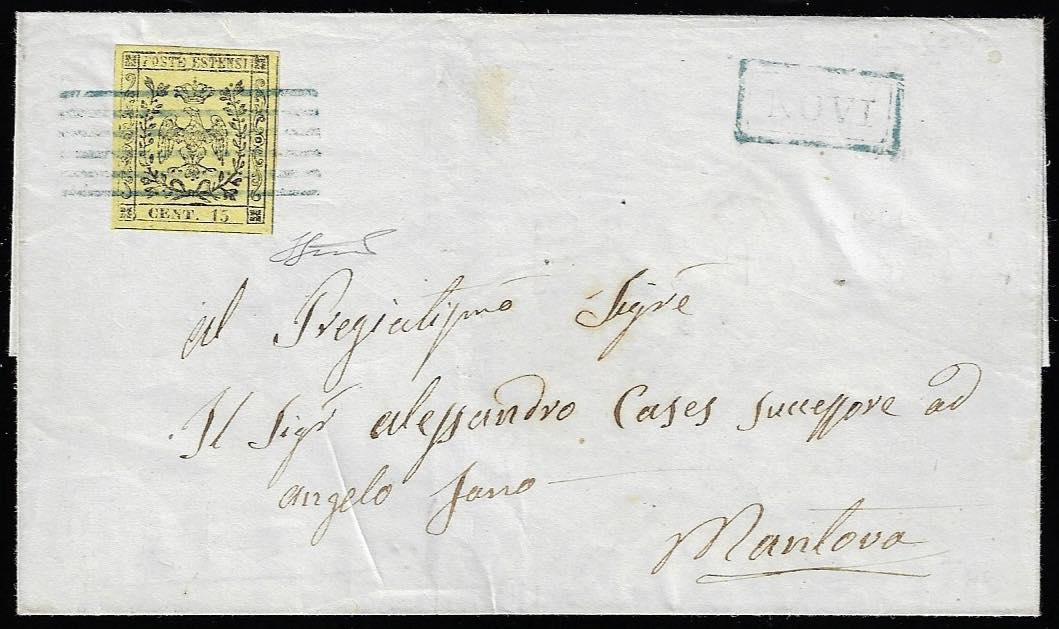 POSTE ESTENSI
CENT. 15
NOVI
Al Pregiatissmo Sigre
Il Sigr Alessandro Cases Successore ad
Angelo
Mantova